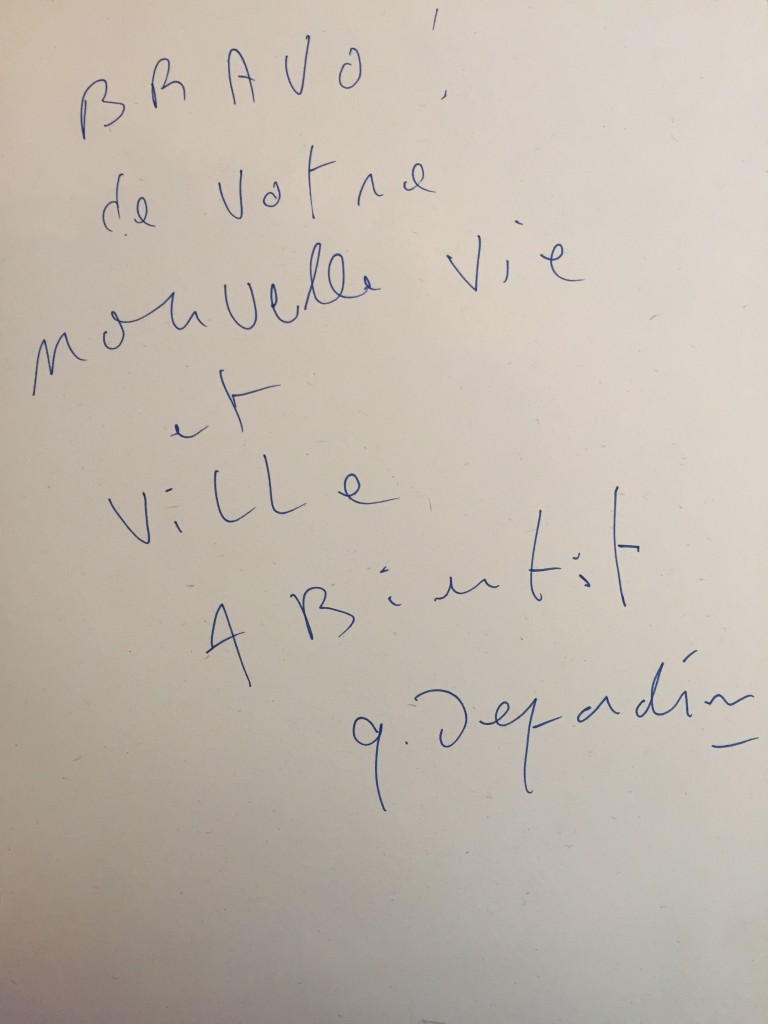 BRAVO !
de votre
nouvelle vie
et
ViLLe
A Bientôt
g. Depardieu